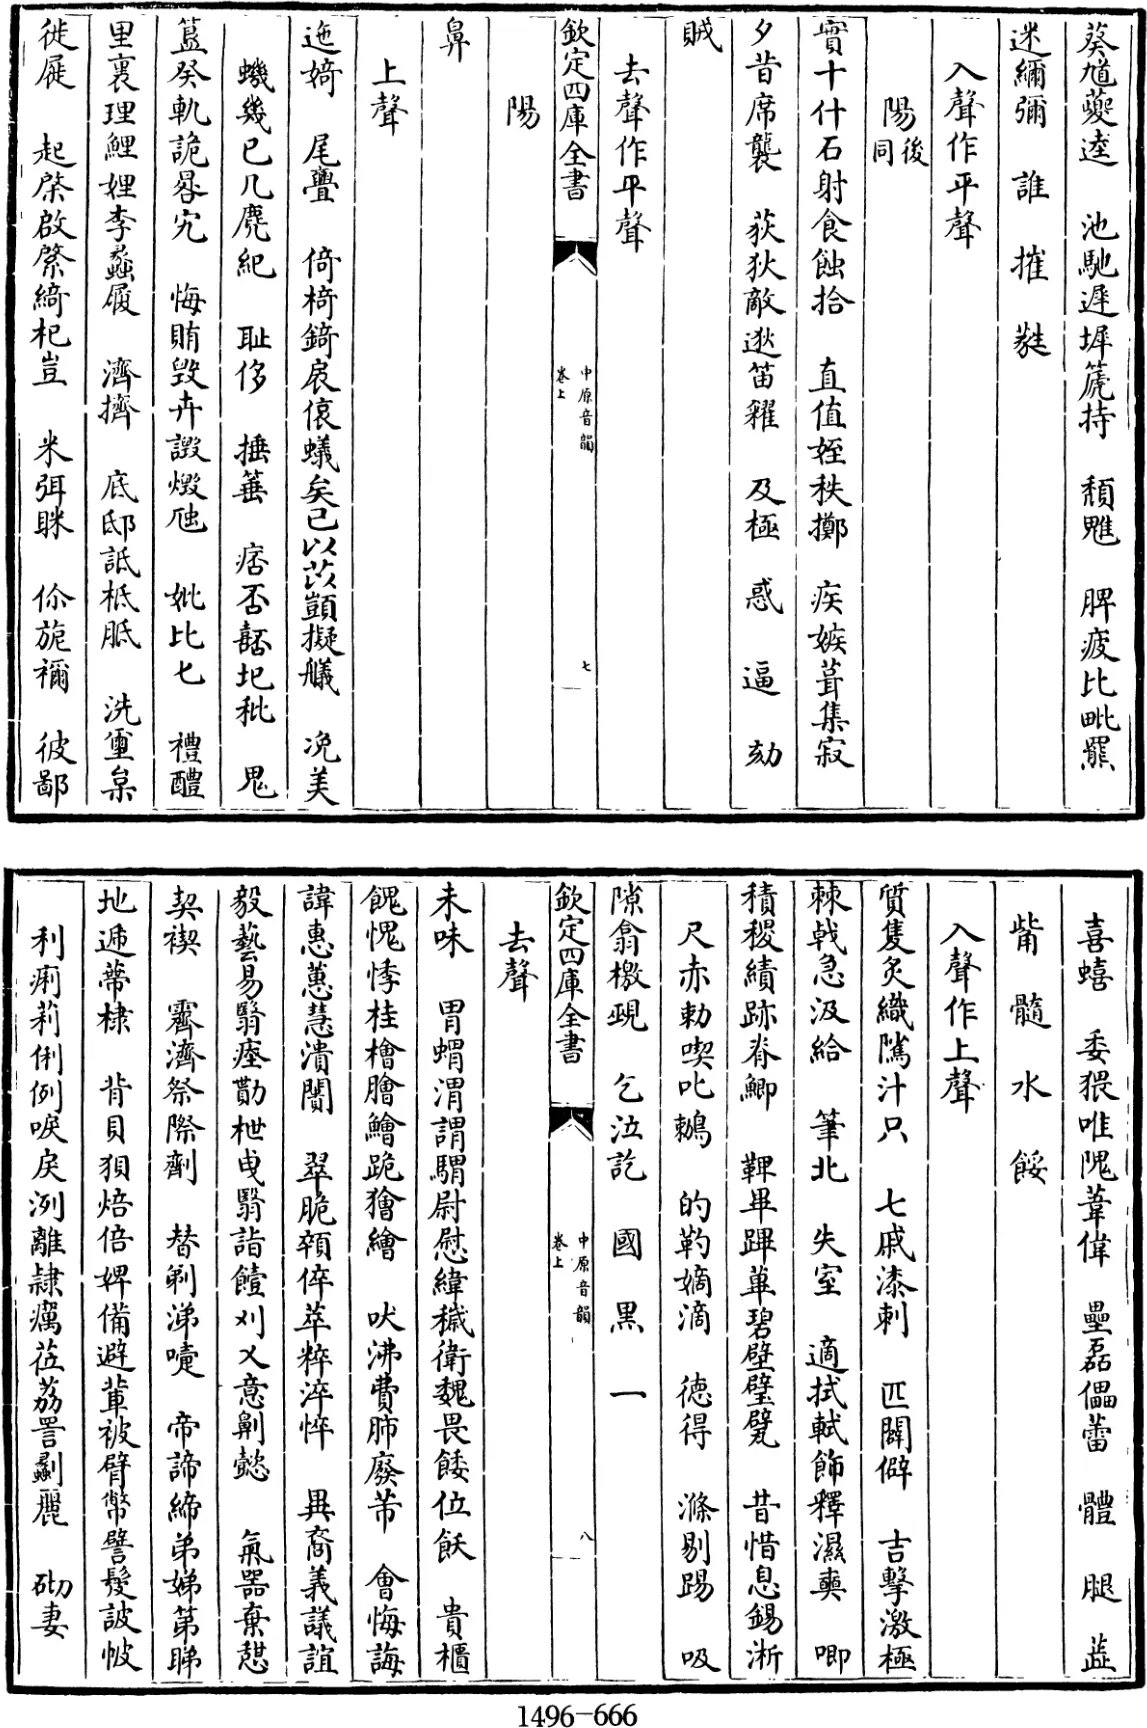 葵馗夔逵 池馳遲墀篪持 頹魋 脾疲比毗羆
迷�ㅤ彌 誰 摧 㽔
入聲作平聲
陽後同
實十什石射食蝕拾 直值姪秩擲 疾嫉葺集寂
夕昔席襲 荻狄敵逖笛糴 及極 惑 逼 劾
賊
去聲作平聲
欽定四庫全書 中原音韻卷上 七
陽
鼻
上聲
迤㛂 尾亹 倚椅錡扆偯蟻矣已以苡顗擬艤 浼美
蟣幾己几麂紀 恥侈 捶菙 痞否嚭圮秕 鬼
簋癸軌詭晷宄 悔賄毀卉譭燬虺 妣比匕 禮醴
里裏理鯉娌李蠡履 濟擠 底邸詆柢胝 洗璽枲
徙屣 起棨啟綮綺杞豈 米弭眯 伱旎禰 彼鄙
喜蟢 委猥唯隗葦偉 壘磊儡蕾 體 腿 蕋
觜 髓 水 餒
入聲作上聲
質隻炙織騭汁只 七戚漆刺 匹闢僻 吉擊激極
棘戟急汲給 筆北 失室 適拭軾飾釋濕奭 唧
積稷績跡脊鯽 鞞畢蹕蓽碧壁璧甓 昔惜息錫淅
尺赤勅喫叱鷘 的靮嫡滴 德得 滌剔踢 吸
隙翕檄覡 乞泣訖 國 黑 一
欽定四庫全書 中原音韻卷上 八
去聲
未味 胃蝟渭謂騩尉慰緯穢衛魏畏餧位飫 貴櫃
餽愧悸桂檜膾鱠跪獪繪 吠沸費肺廢芾 會悔誨
諱惠蕙慧潰闠 翠脆顇倅萃粹淬悴 異裔義議誼
毅藝易翳瘞勩枻曳翳詣饐刈乂意劓懿 氣器棄憇
契禊 霽濟祭際劑 替剃涕嚏 帝諦締弟娣第睇
地遞蔕棣 背貝狽焙倍婢備避輩被臂幣譬髲詖帔
利痢莉俐例唳戾洌離隸癘莅荔詈劙麗 砌妻
1496-666